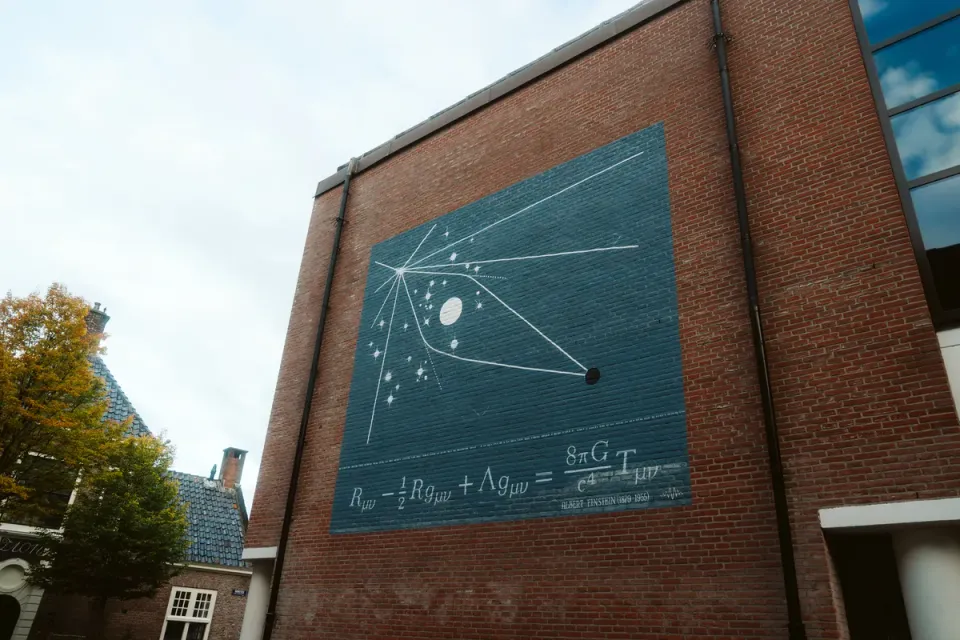 R_{μν} − \frac{1}{2} Rg_{μν} + Λg_{μν} = \frac{8πG}{c^4} T_{μν}
ALBERT EINSTEIN (1879-1955)